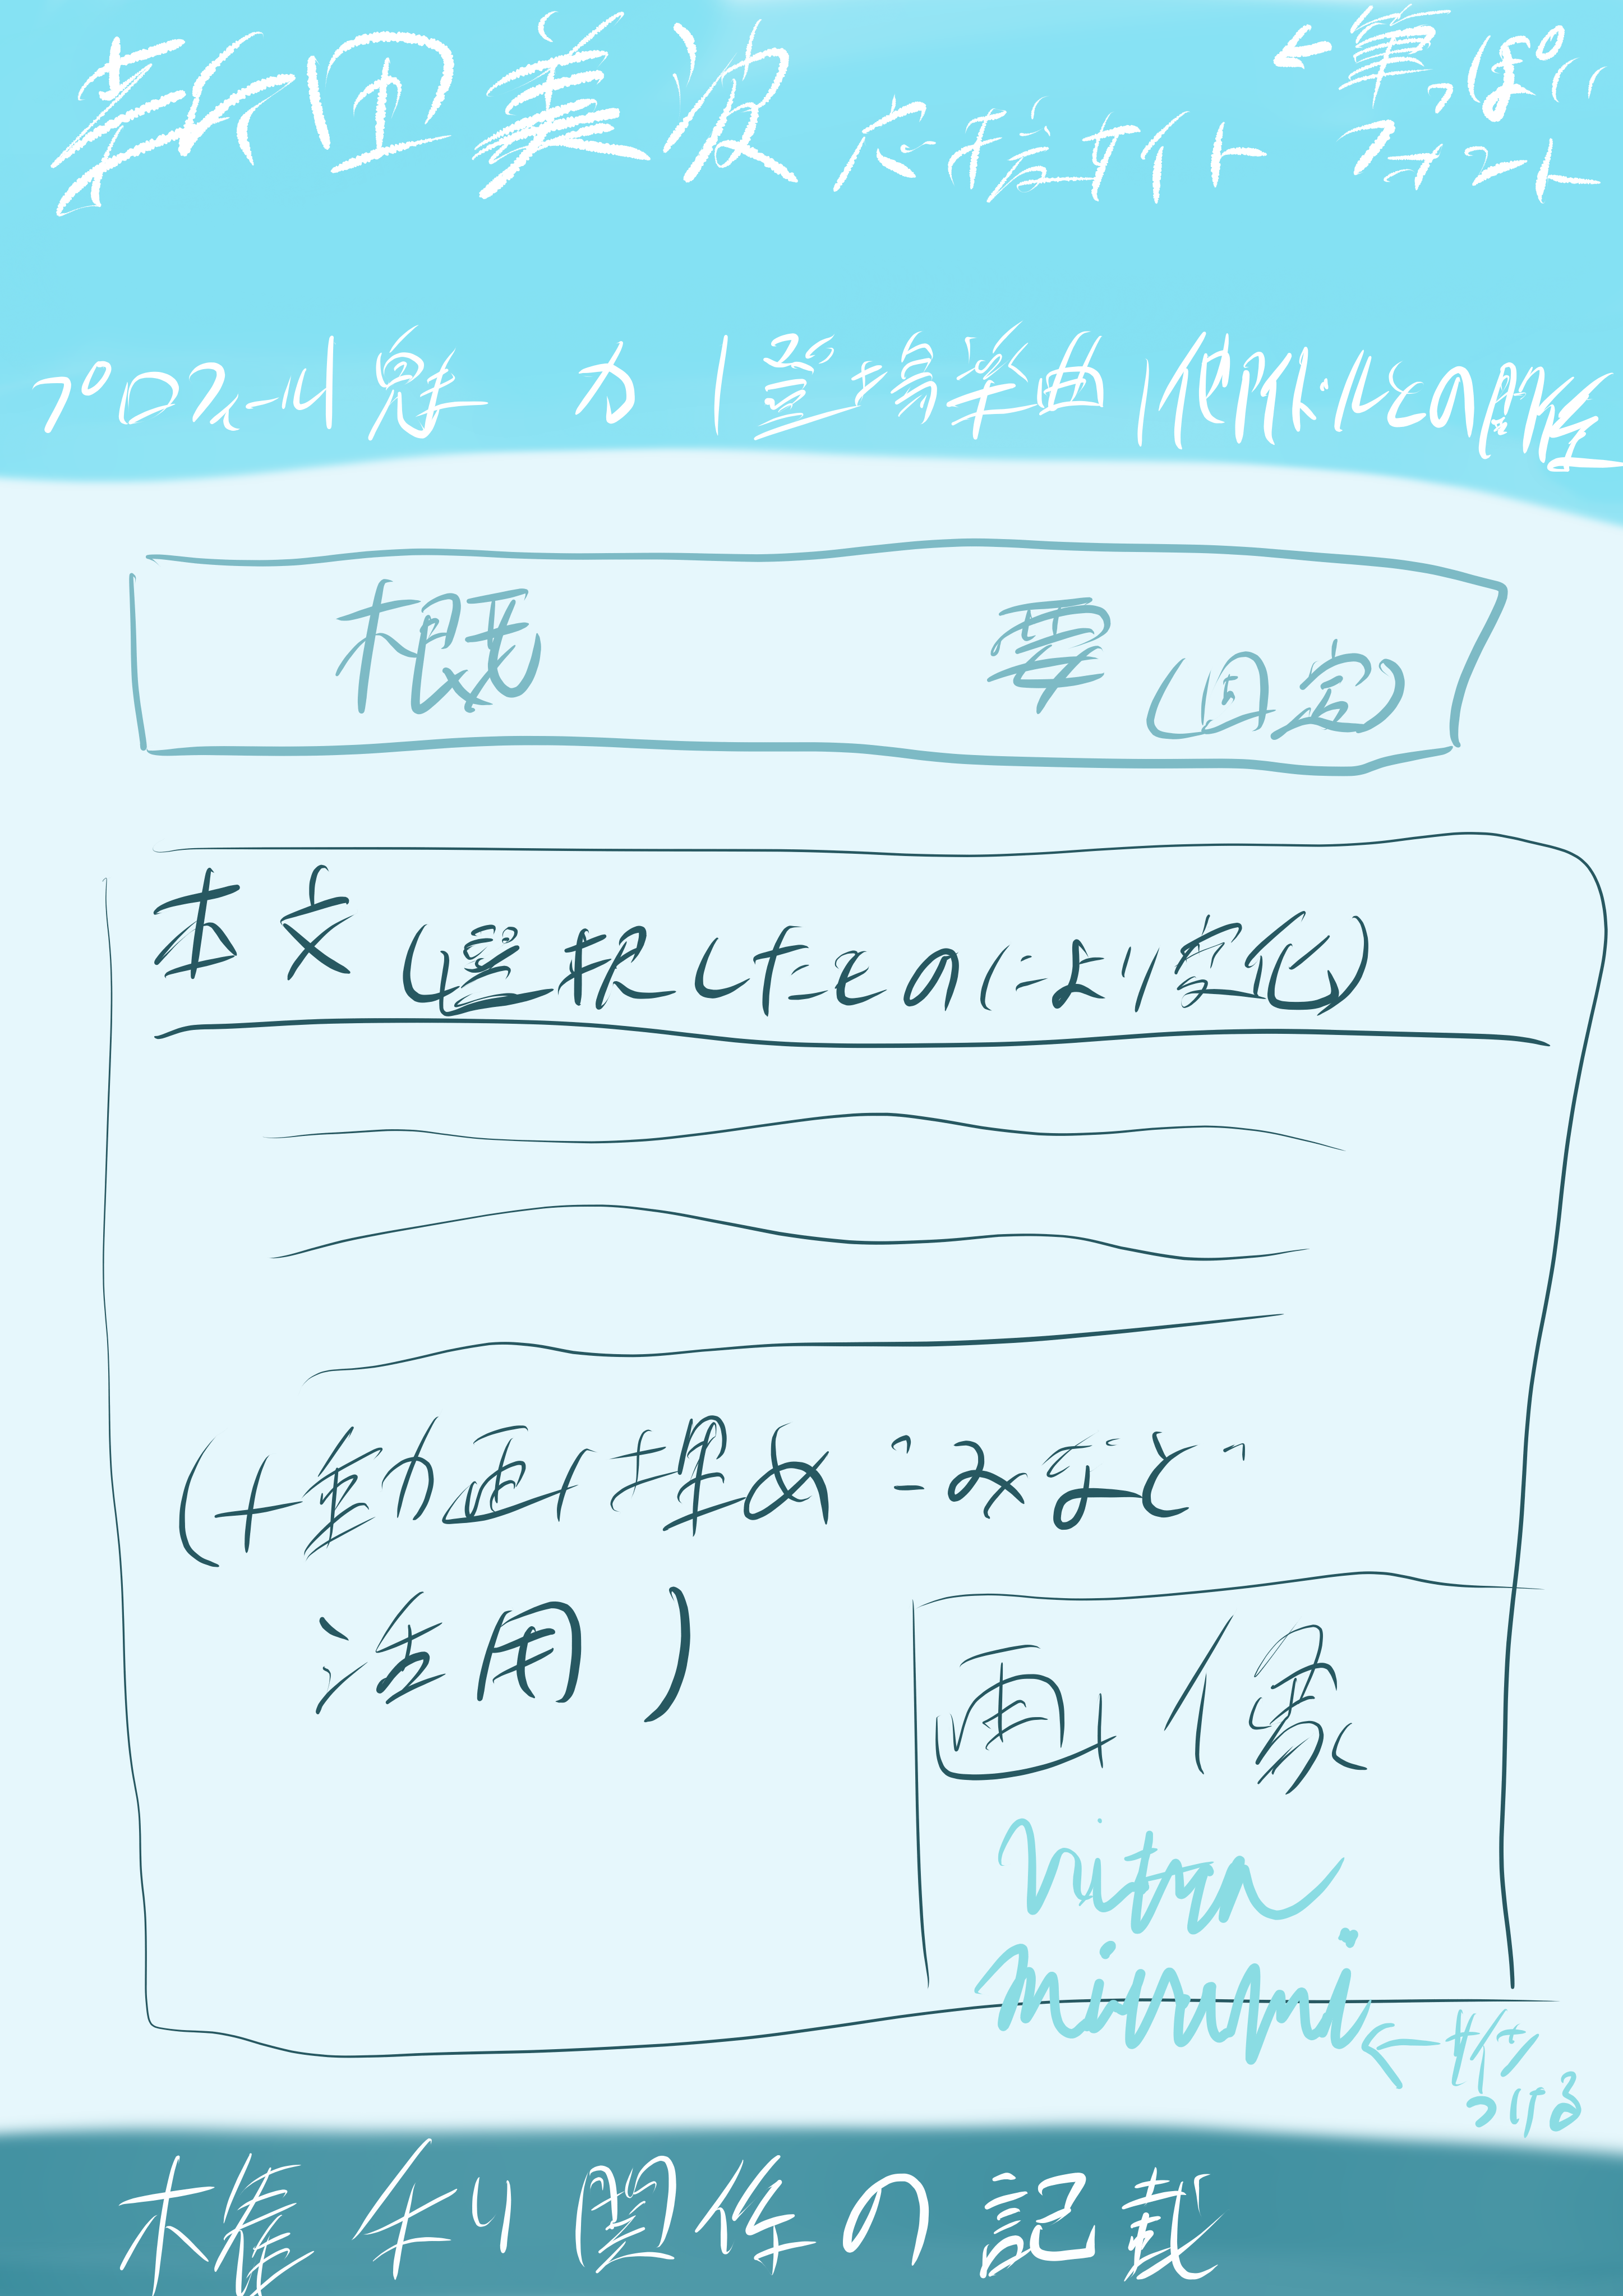 新田美波 応援サイト ←筆っぽい
フォント
プロフィール 魅 力 | 登場楽曲 | 他アイドルとの関係
概 要 (固定)
本文 (選択したものにより変化)
(+動画埋めこみなどで
活用)
画像
nitta
minami
←サイン
つける
権利関係の記載